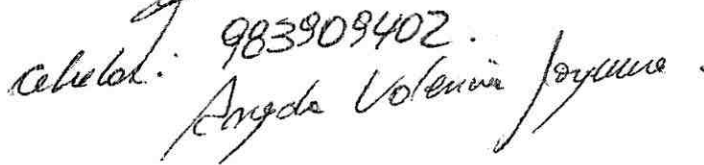 celular: 983909402.
Angela Valencia